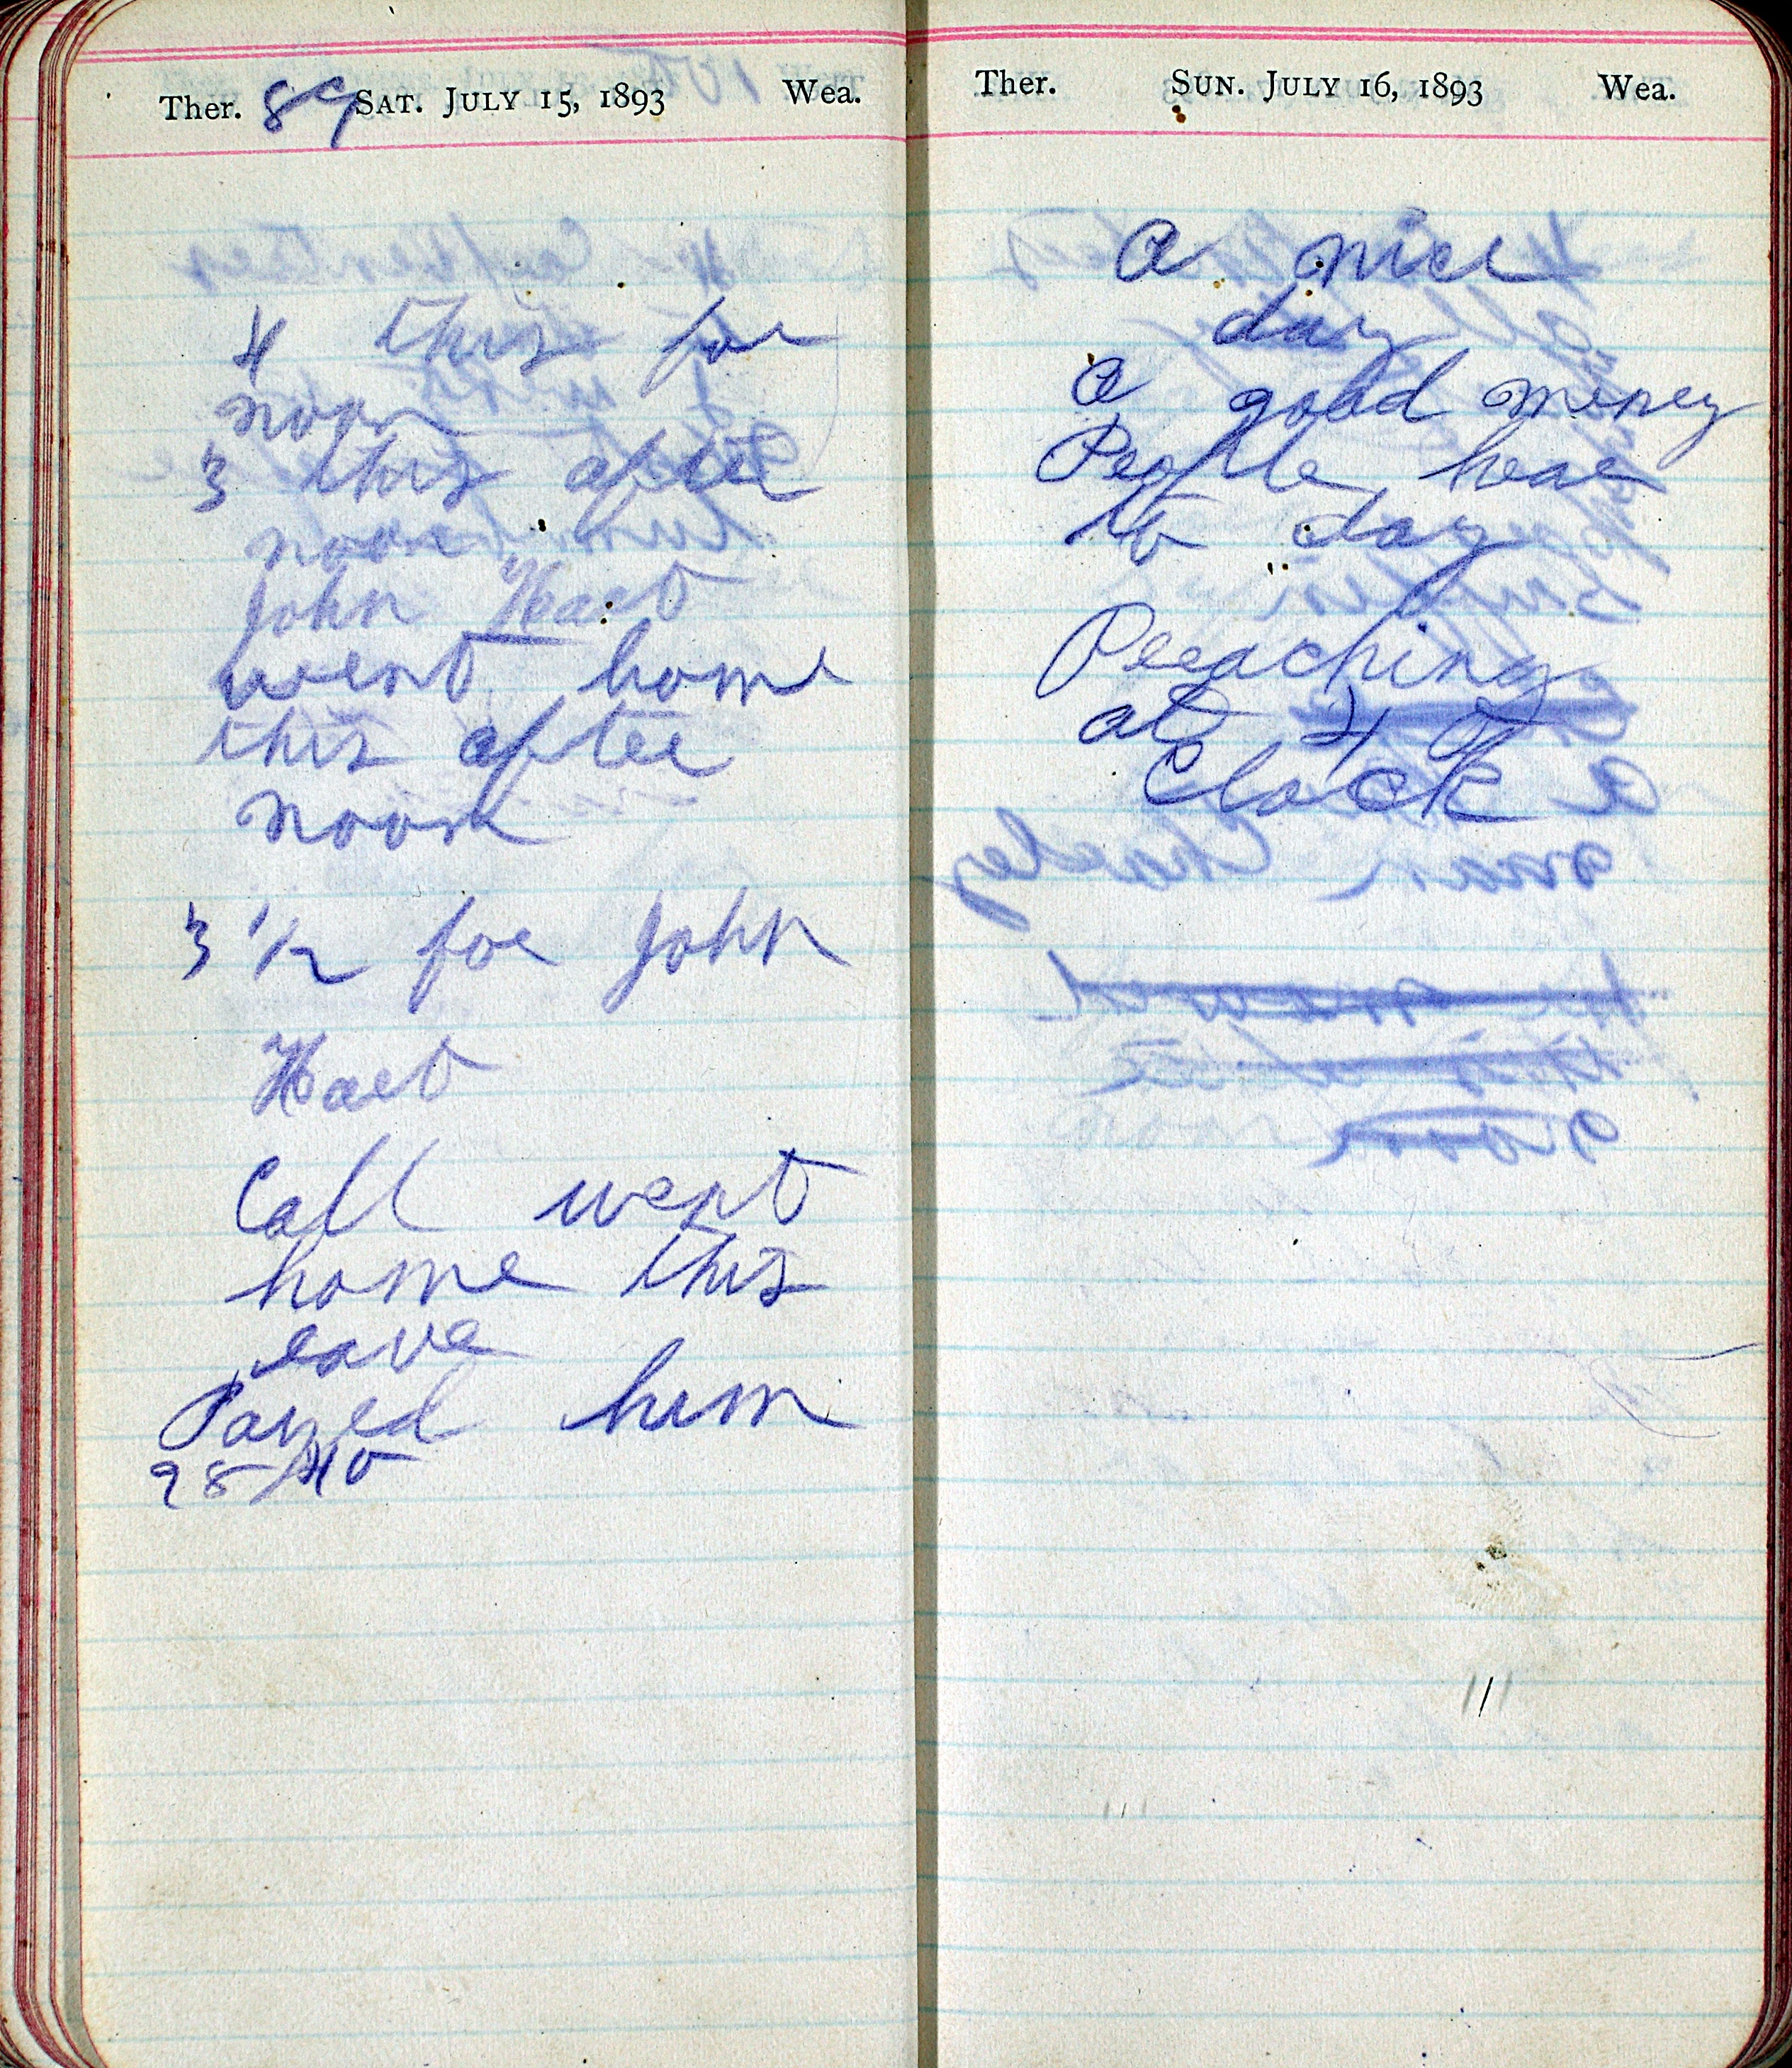 Ther. 89 SAT. JULY 15, 1893 Wea.
4 this for
noon
3 this after
noon
John Hart
went home
this after
noon
3 1/2 for John
Hart
Call went
home this
eave
Payed him
28/40
Ther. SUN. JULY 16, 1893 Wea.
A nice
day
A good meney
People hear
to day
Preaching
at 4 O
Clock